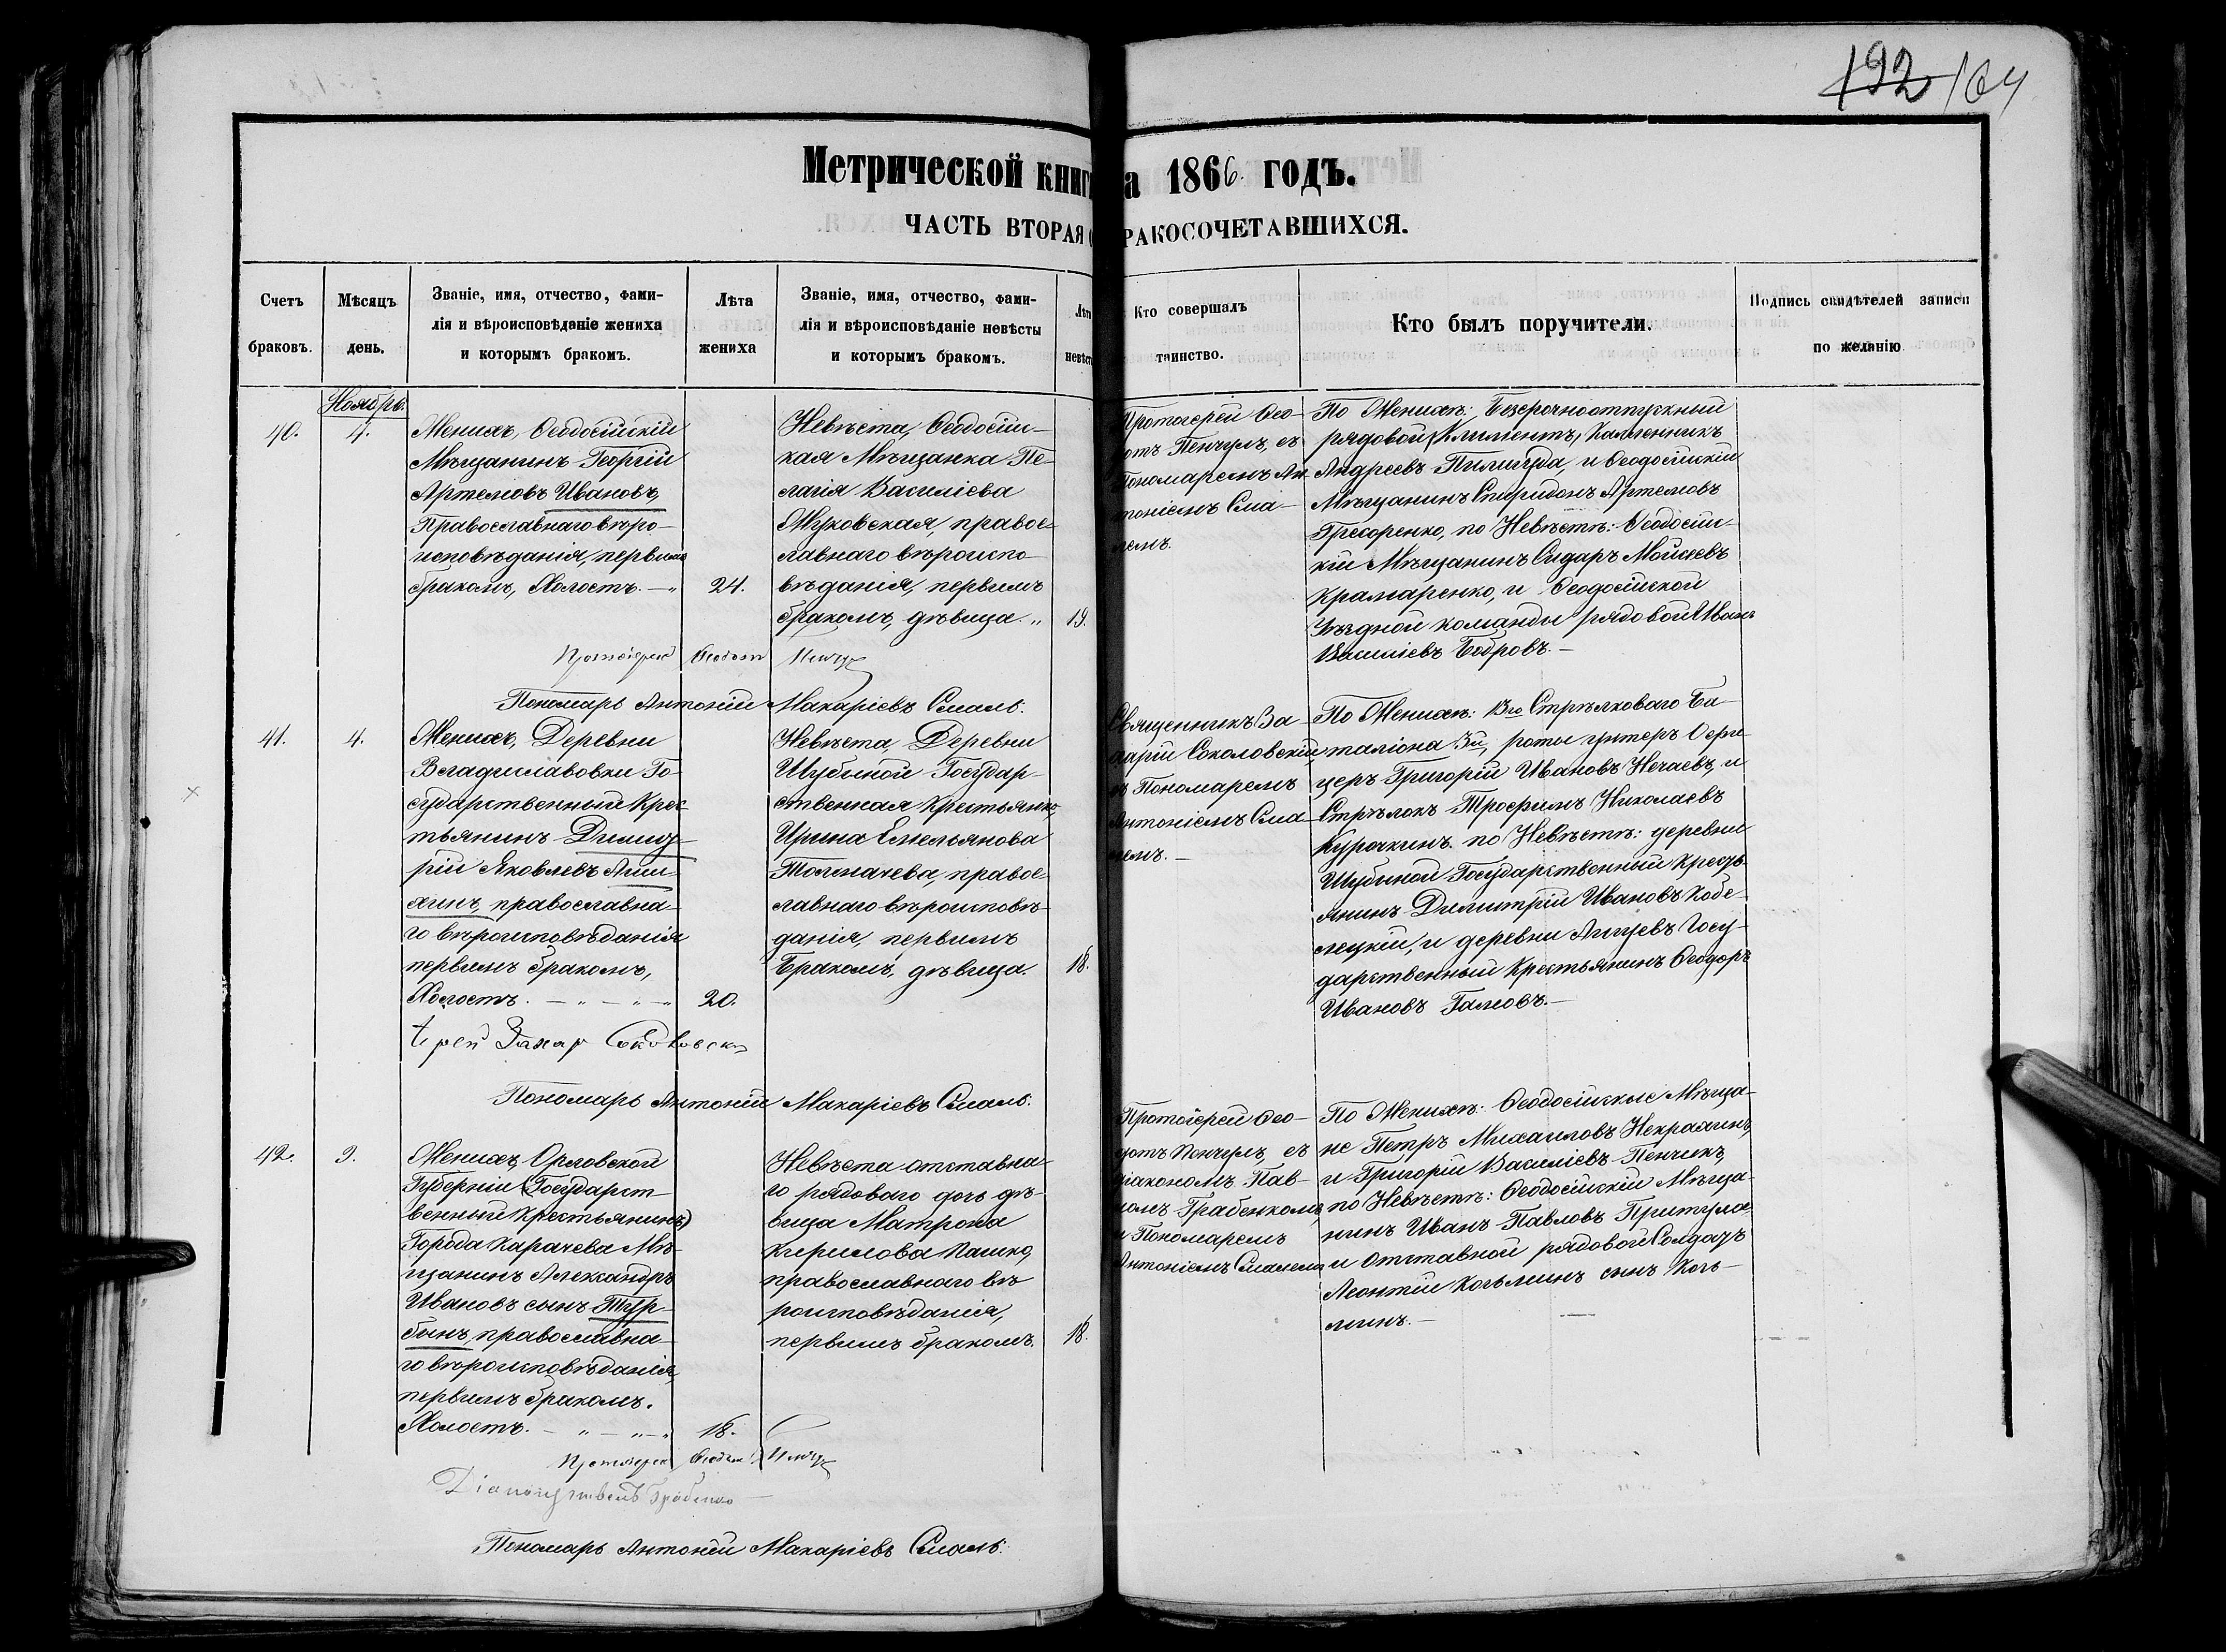 192 164
Метрической книг
а 1866. годъ.
ЧАСТЬ ВТОРАЯ
РАКОСОЧЕТАВШИХСЯ.
Счетъ
браковъ.
Мѣсяцъ
день.
Званіе, имя, отчество, фами-
лія и вѣроисповѣданіе жениха
и которымъ бракомъ.
Лѣта
жениха
Званіе, имя, отчество, фами-
лія и вѣроисповѣданіе невѣсты
и которымъ бракомъ.
Лѣт
невѣст
Кто совершалъ
таинство.
Кто былъ поручители.
Подпись свидѣтелей записи
по желанію
Ноябрь.
40.
4.
Женихъ, Ѳеодосійскій
Мѣщанинъ Георгій
Артемовъ Ивановъ,
Православнаго вѣро-
исповѣданія, первымъ
бракомъ, Холостъ. — „
24.
Невѣста, Ѳеодосійс-
кая Мѣщанка Пе-
лагія Василіева
Жуковская, правос-
лавнаго вѣроиспо-
вѣданія, первымъ
бракомъ, дѣвица. „
19.
Протоіерей Ѳео-
отъ Пенчулъ, съ
Пономаремъ Ан-
тоніемъ Сма-
лемъ.
По Женихѣ: Безсрочноотпускный
рядовой Климентъ, Каменникъ
Андреевъ Пилигуда, и Ѳеодосійскій
Мѣщанинъ Спиридонъ Артемовъ
по Невѣстѣ: Ѳеодосійс-
кій Мѣщанинъ Сидаръ Мойсеевъ
Крамаренко, и Ѳеодосійской
Уѣздной команды рядовой Иванъ
Василіевъ Бобровъ. —
Протоіерей Ѳеодотъ Пенчулъ
Пономарь Антоній Макаріевъ Смаль.
41.
4.
Женихъ, Деревни
Владиславовки Го-
сударственный Крес-
тьянинъ Димит-
рій Яковлевъ Али-
хинъ, православна-
го вѣроисповѣданія
первымъ бракомъ,
Холостъ. — „ — „ — „
20.
Невѣста, Деревни
Шубиной Государ-
ственная Крестьянка,
Ирина Емельянова
Толмачева, правос-
лавнаго вѣроисповѣ-
данія, первымъ
бракомъ, дѣвица.
18.
Священникъ За-
харій Соколовскій,
съ Пономаремъ
Антоніемъ Сма-
лемъ. —
По Женихѣ: 13го Стрѣлковаго Ба-
таліона 3й, роты унтеръ Офи-
церъ Григорій Ивановъ Нечаевъ, и
Стрѣлокъ Трофимъ Николаевъ
Курочкинъ. по Невѣстѣ: деревни
Шубиной Государственный Кресть-
янинъ Димитрій Ивановъ Кобе-
лецкій, и деревни Госу-
дарственный Крестьянинъ Ѳеодоръ
Ивановъ —
Іерей Захар Соколовскій
Пономарь Антоній Макаріевъ Смаль.
42.
9.
Женихъ, Орловской
Губерніи (Государст-
венный Крестьянинъ)
Города Карачева Мѣ-
щанинъ Александръ
Ивановъ сынъ Тур-
бинъ, православна-
го вѣроисповѣданія,
первымъ бракомъ.
Холостъ. — „ — „ — „
18.
Невѣста отставна-
го рядоваго дочь дѣ-
вица Матрона
Кирилова Пашко,
православнаго вѣ-
роисповѣданія,
первымъ бракомъ.
18.
Протоіерей Ѳео-
дотъ Пенчулъ, съ
діакономъ Пав-
ломъ Грабенкомъ,
и Пономаремъ
Антоніемъ Смалемъ
По Женихѣ: Ѳеодосійскіе Мѣща-
не Петръ Михаиловъ Некрахинъ,
и Григорій Василіевъ Пенчикъ,
по Невѣстѣ: Ѳеодосійскій Мѣща-
нинъ Иванъ Павловъ Притула
и отставной рядовой Солдатъ
Леонтій Козьминъ сынъ Козь-
минъ. —
Протоіерей Ѳеодотъ Пенчулъ
Пономарь Антоній Макаріевъ Смаль.